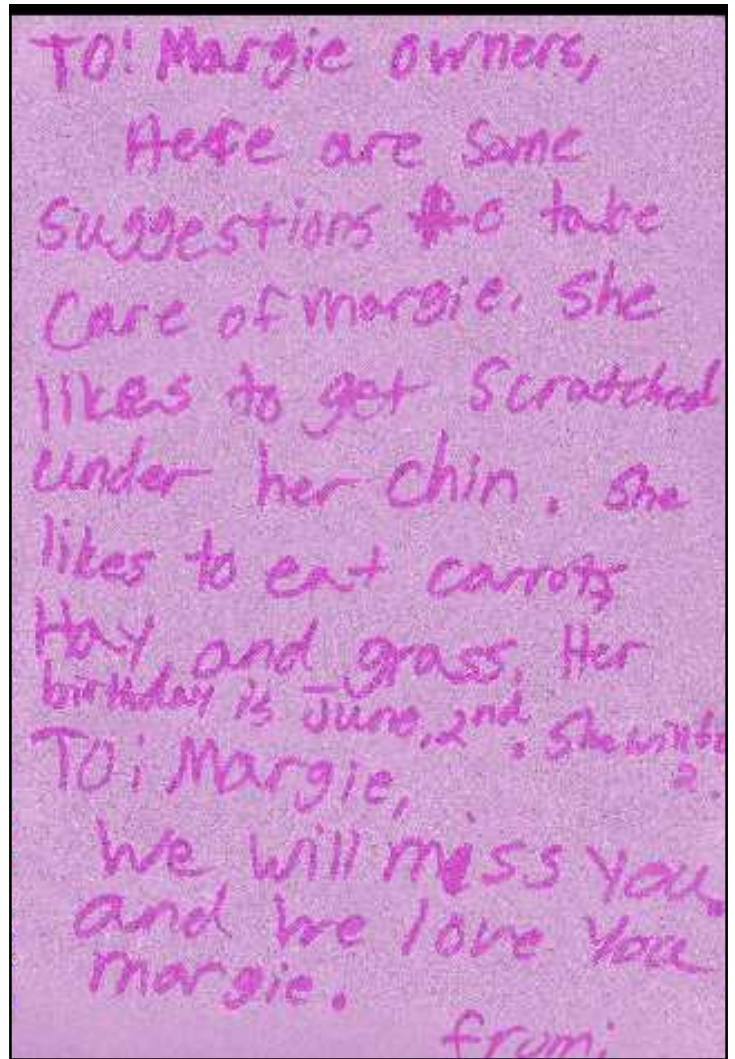 TO! Margie owners,
Here are some
suggestions to take
Care of margie. She
likes to get Scratched
under her chin. She
likes to eat carrots
Hay and grass. Her
birthday is June, 2nd. She will be
2.
TO: Margie,
we will miss you
and we love you
margie.
from: